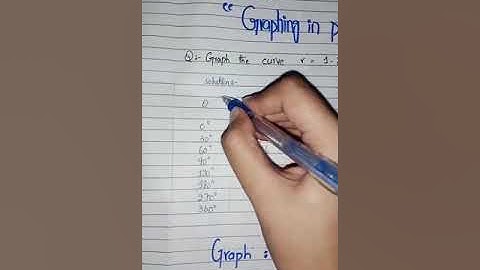 “ Graphing in p
Q:- Graph the curve r = 1-
Solution:-
θ
0°
30°
60°
90°
120°
180°
270°
360°
Graph :